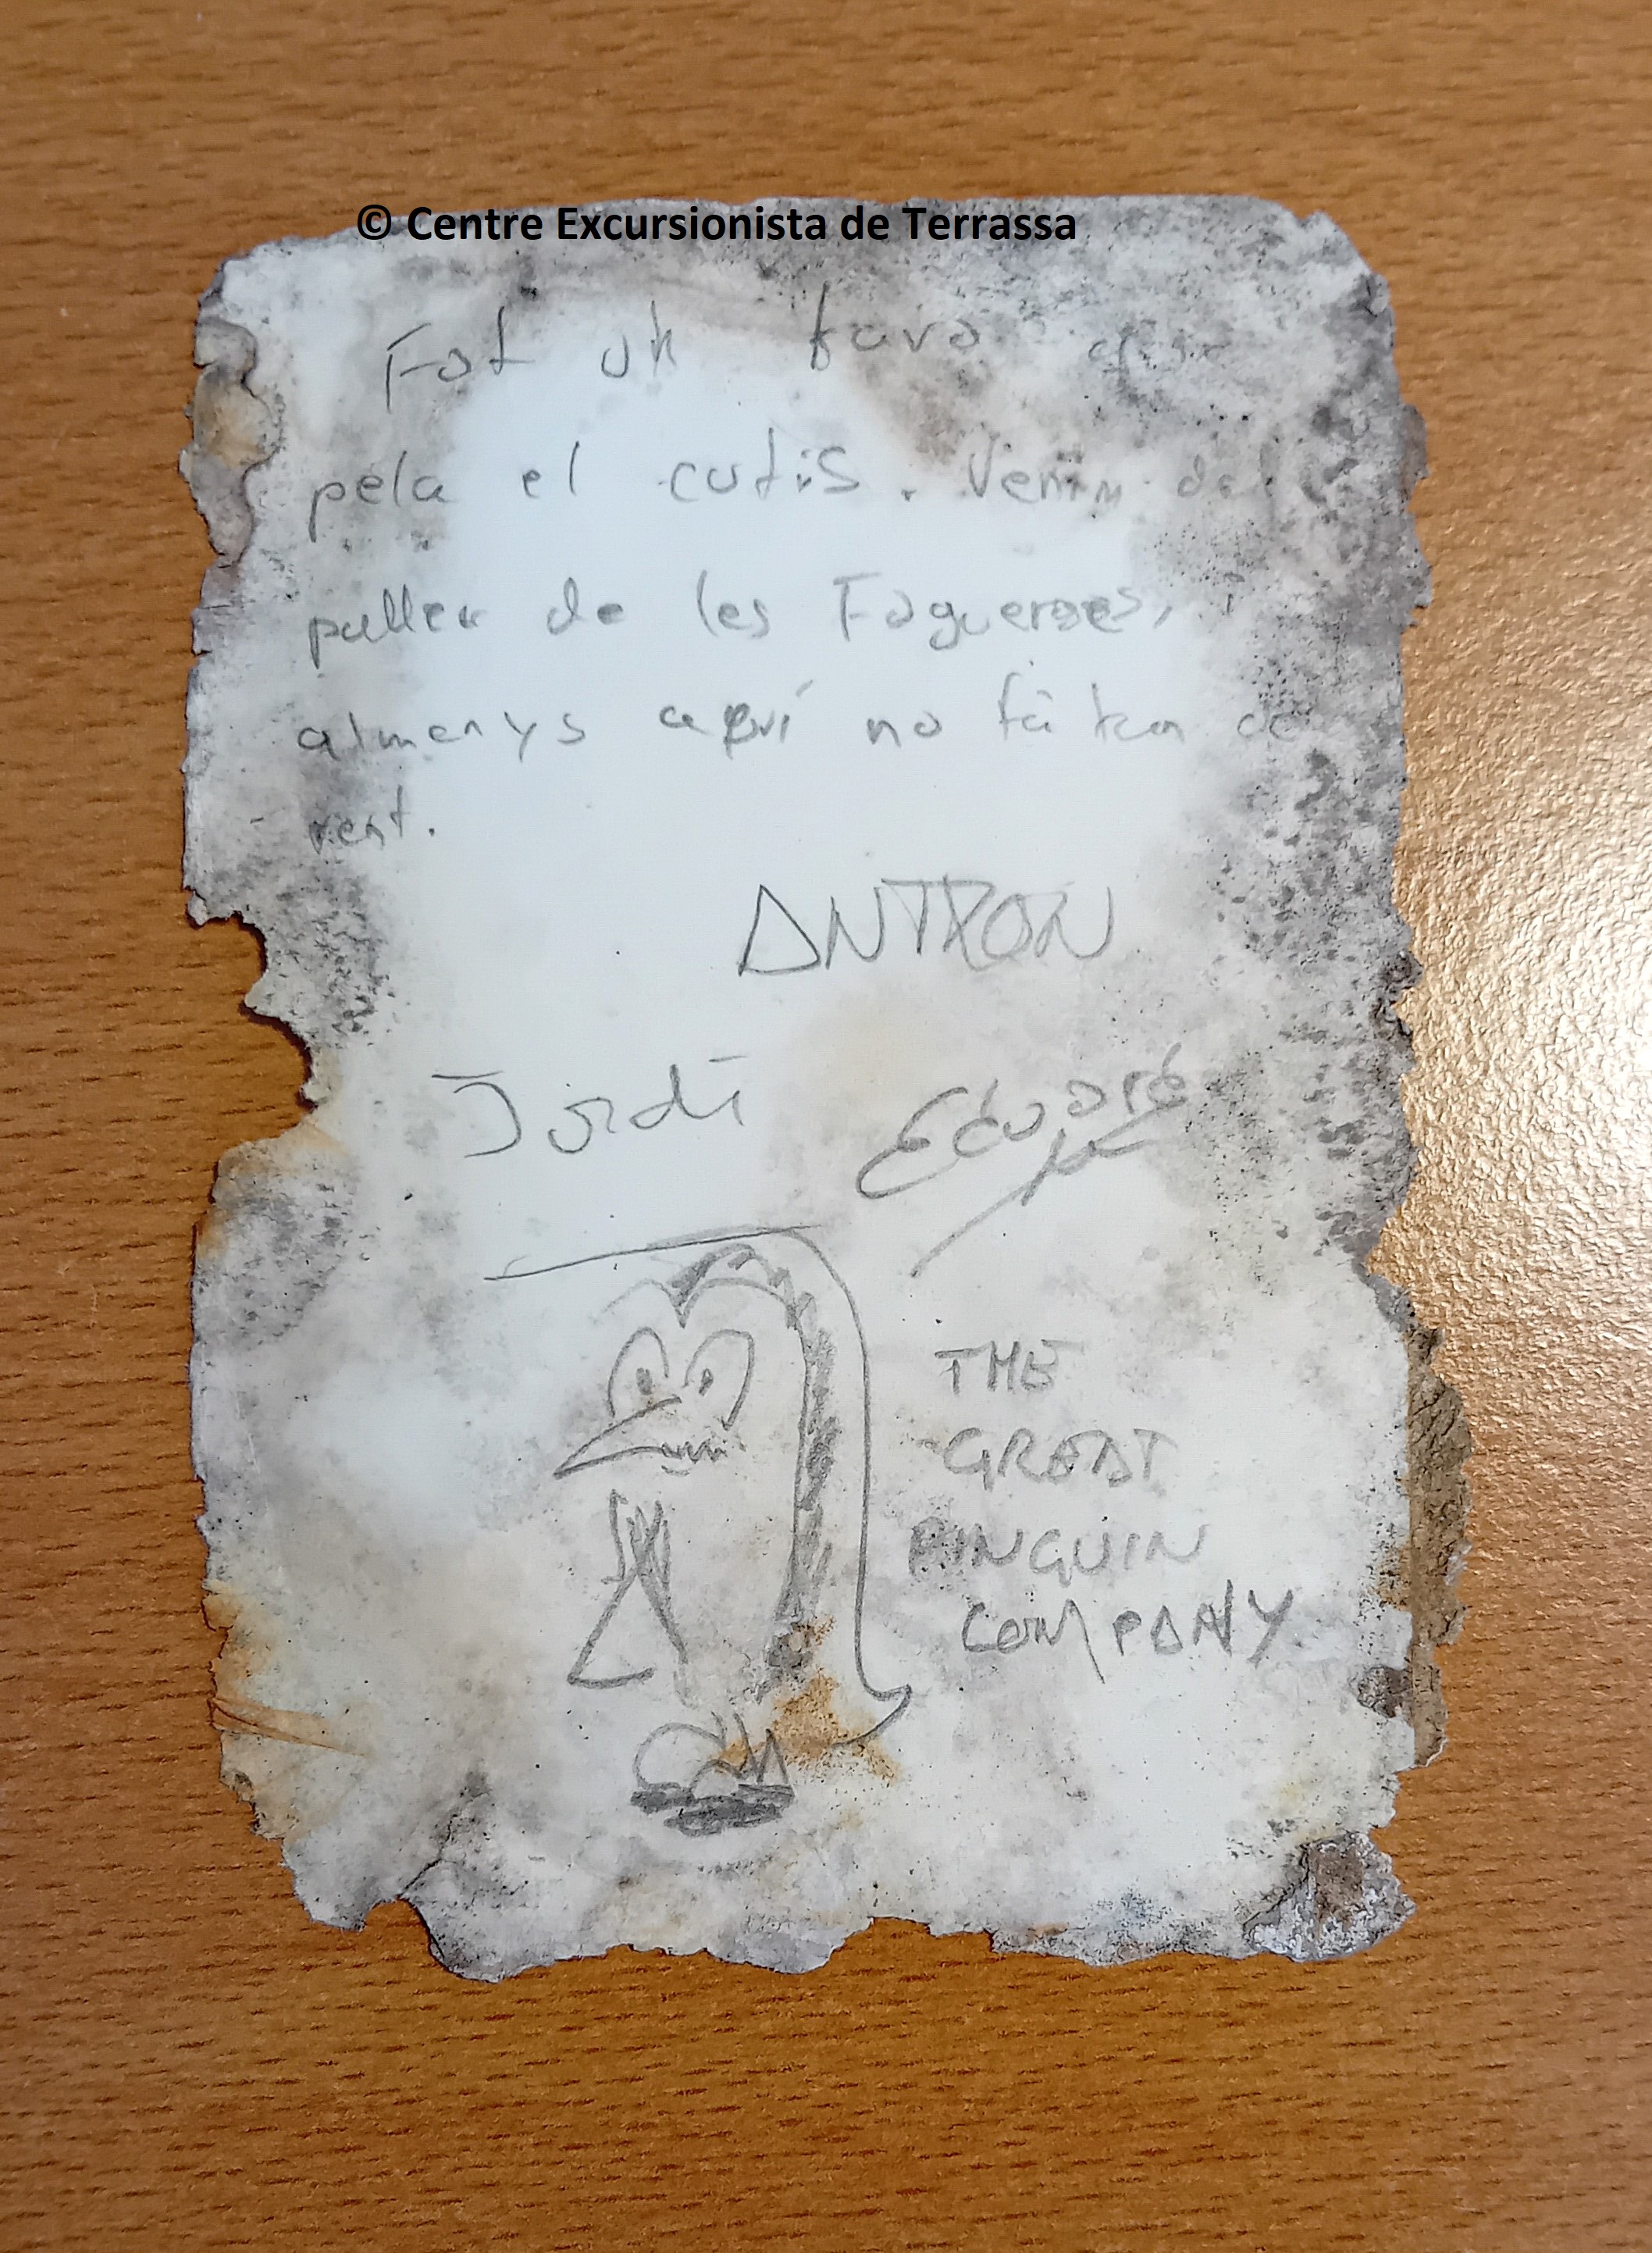 © Centre Excursionista de Terrassa
Fot un
pela el cutis. Venim del
de les Fagueroses,
almenys aquí no fa tan de
vent.
ANTRON
Jordi Eduard
THE
GREAT
PINGUIN
COMPANY